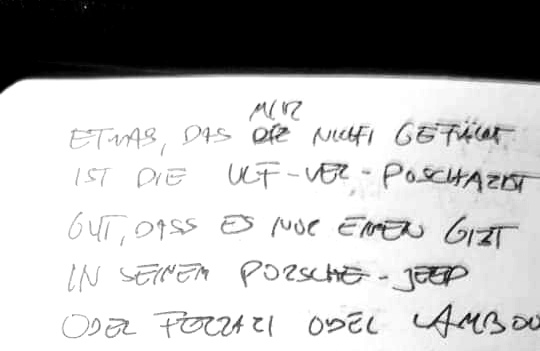 MIR
ETWAS, DAS DIR NICHT GEFÄLLT
IST DIE ULF-VER-POSCHARDT
GUT, DASS ES NUR EINEN GIBT
IN SEINEM PORSCHE-JEEP
ODER FERRARI ODER LAMBO